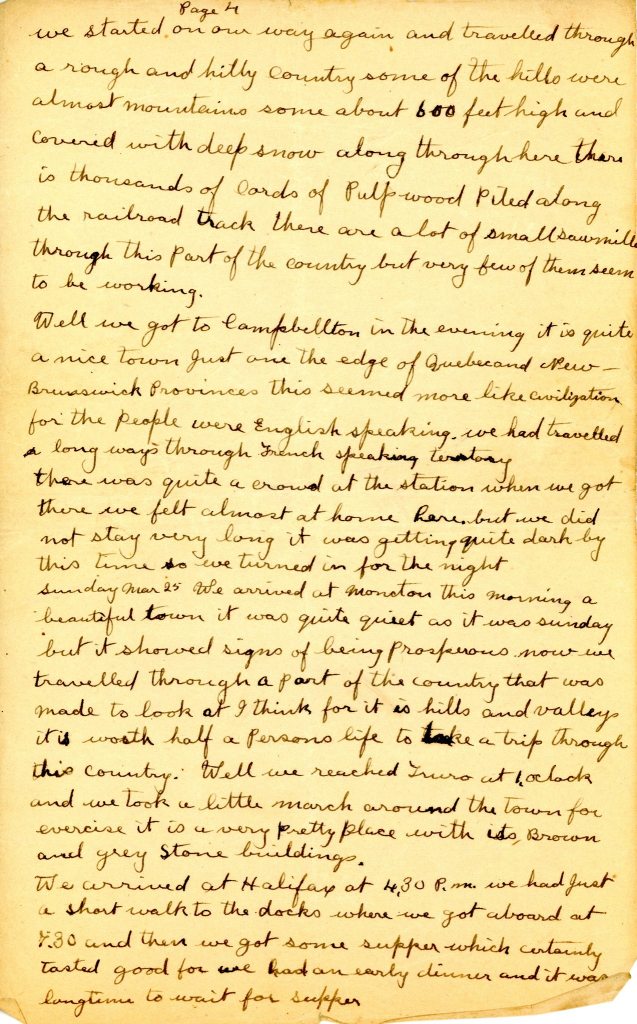 Page 4
we started on our way again and travelled through
a rough and hilly Country some of the hills were
almost mountains some about 600 feet high and
covered with deep snow along through here there
is thousands of Cords of Pulpwood Piled along
the railroad track there are a lot of small sawmills
through this Part of the country but very few of them seem
to be working.
Well we got to Campbellton in the evening it is quite
a nice town Just one the edge of Quebec and New-
Brunswick Provinces this seemed more like civilization
for the People were English speaking. we had travelled
a long ways through French speaking terstory
there was quite a crowd at the station when we got
there we felt almost at home here. but we did
not stay very long it was getting quite dark by
this time so we turned in for the night
Sunday Mar 25 We arrived at Monston this morning a
beautiful town it was quite quiet as it was sunday
but it showed signs of being Prosperous now we
travelled through a Part of the country that was
made to look at I think for it is hills and valleys
it is worth half a Persons life to take a trip through
this country. Well we reached Truro at 1,oclock
and we took a little march around the town for
exercise it is a very Pretty Place with its, Brown
and grey Stone buildings.
We arrived at Halifax at 4,30 P.m. we had Just
a short walk to the docks where we got aboard at
7.30 and then we got some supper which certainly
tasted good for we had an early dinner and it was
longtime to wait for supper